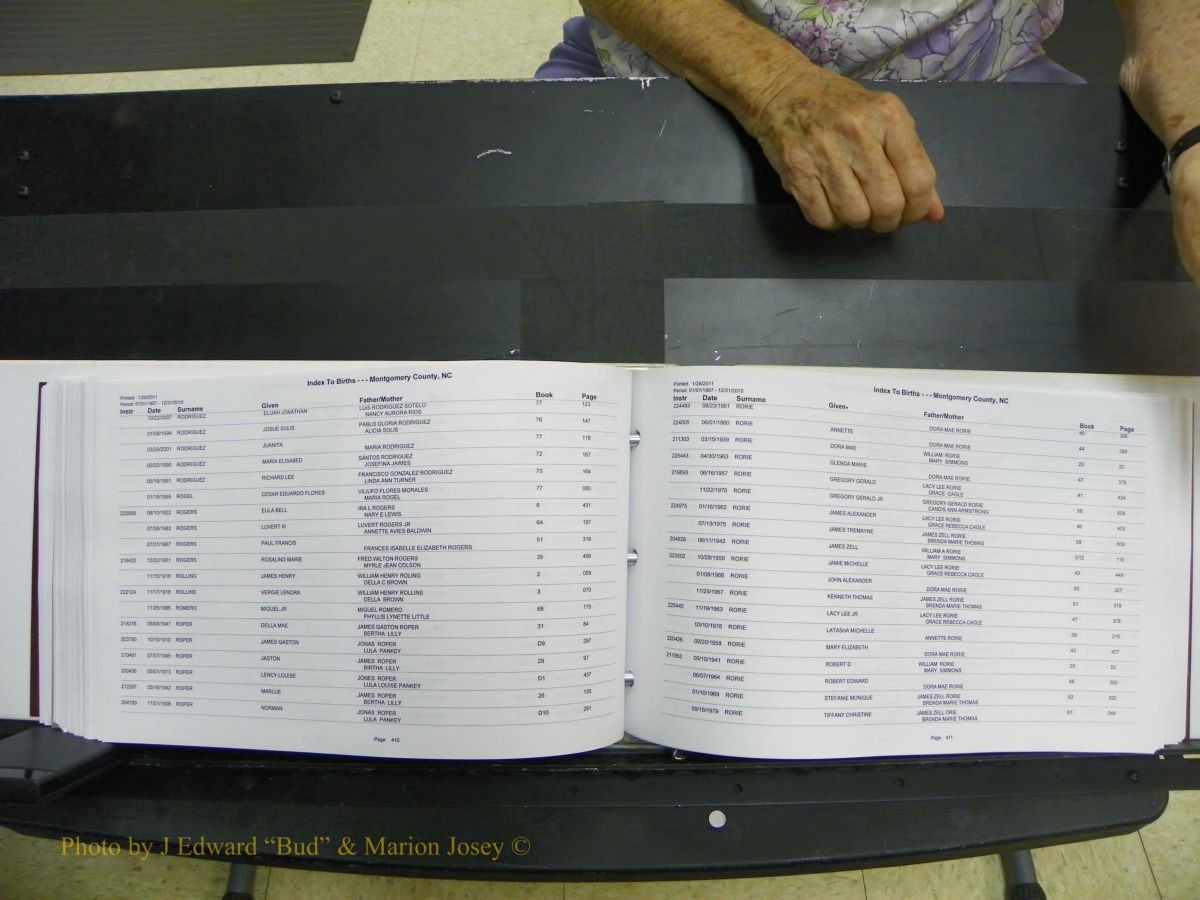 Index To Births - - - Montgomery County, NC
Printed: 1/28/2011
Period: 01/01/1867 - 12/31/2010
Instr Date Surname Given Father/Mother Book Page
10/22/2007 RODRIGUEZ ELIJAH JONATHAN LUIS RODRIGUEZ SOTELO 77 123
NANCY AURORA RIOS
RODRIGUEZ JOSUE SOLIS PABLO GLORIA RODRIGUEZ 76 147
ALICIA SOLIS
03/29/2001 RODRIGUEZ JUANITA 77 118
MARIA RODRIGUEZ
RODRIGUEZ MARIA ELISABED SANTOS RODRIGUEZ 72 167
JOSEFINA JAIMES
RODRIGUEZ RICHARD LEE FRANCISCO GONZALEZ RODRIGUEZ 73 164
LINDA ANN TURNER
ROGEL CESAR EDUARDO FLORES VILIUFO FLORES MORALES 77 080
MARIA ROGEL
06/10/1922 ROGERS EULA BELL IRA L ROGERS 6 431
NARY E LEWIS
07/26/1982 ROGERS LUVERT III LUVERT ROGERS JR 64 197
ANNETTE AVIES BALDWIN
07/31/1967 ROGERS PAUL FRANCIS 51 318
FRANCES ISABELLE ELIZABETH ROGERS
12/02/1951 ROGERS ROSALIND MARIE FRED WILTON ROGERS 35 456
MYRLE JEAN COLSON
11/15/1916 ROLLING JAMES HENRY WILLIAM HENRY ROLING 2 059
DELLA C BROWN
222124 11/17/1918 ROLLINS VERGIE LENORA WILLIAM HENRY ROLLINS 3 070
DELLA BROWN
11/25/1986 ROMERO MIGUEL JR MIGUEL ROMERO 68 175
PHYLLIS LYNETTE LITTLE
214216 05/09/1947 ROPER DELLA MAE JAMES GASTON ROPER 31 84
BERTHA LILLY
203790 10/15/1910 ROPER JAMES GASTON JONAS ROPER D9 297
LULA PANKEY
213461 07/07/1945 ROPER JASTON JAMES ROPER 29 97
BIRTHA LILLY
200436 05/01/1913 ROPER LENCY LOUISE JONES ROPER D1 437
LULA LOUISE PANKEY
212397 05/16/1942 ROPER MARLUE JAMES ROPER 26 130
BERTHA LILLY
204169 11/21/1908 ROPER NORMAN JONAS ROPER D10 291
LULA PANKEY
Page 410
Index To Births - - - Montgomery County, NC
Printed: 1/28/2011
Period: 01/01/1867 - 12/31/2010
Instr Date Surname Given Father/Mother Book Page
224483 08/23/1961 RORIE ANNETTE
DORA MAE RORIE
224005 06/01/1960 RORIE DORA MAE 44 399
DORA MAE RORIE
211303 03/15/1939 RORIE GLENDA MARIE WILLIAM RORIE 23 20
MARY SIMMONS
225443 04/30/1963 RORIE GREGORY GERALD 47 379
DORA MAE RORIE
219893 06/15/1957 RORIE GREGORY GERALD JR LACY LEE RORIE 41 434
GRACE CAGLE
11/22/1975 RORIE JAMES ALEXANDER GREGORY GERALD RORIE 58 609
CANDIS ANN ARMSTRONG
224975 01/16/1962 RORIE JAMES TREMAYNE LACY LEE RORIE 46 403
GRACE REBECCA CAGLE
07/13/1975 RORIE JAMES ZELL JAMES ZELL RORIE 58 509
BRENDA MARIE THOMAS
204828 06/11/1943 RORIE JAMIE MICHELLE WILLIAM A RORIE D12 116
MARY SIMMONS
223502 10/28/1959 RORIE JOHN ALEXANDER LACY LEE RORIE 43 449
GRACE REBECCA CAGLE
01/08/1966 RORIE KENNETH THOMAS 50 327
DORA MAE RORIE
11/29/1967 RORIE LACY LEE JR JAMES ZELL RORIE 51 319
BRENDA MARIE THOMAS
225442 11/19/1963 RORIE LATASHA MICHELLE LACY LEE RORIE 47 378
GRACE REBECCA CAGLE
03/10/1976 RORIE MARY ELIZABETH 59 216
ANNETTE RORIE
220426 09/20/1958 RORIE ROBERT D 42 427
DORA MAE RORIE
211983 09/10/1941 RORIE ROBERT EDWARD WILLIAM RORIE 25 53
MARY SIMMONS
06/07/1964 RORIE STEFANIE MONIQUE 48 382
DORA MAE RORIE
01/10/1969 RORIE TIFFANY CHRISTINE JAMES ZELL RORIE 53 332
BRENDA MARIE THOMAS
09/15/1979 RORIE JAMES ZELL ORIE 61 249
BRENDA MARIE THOMAS
Page 411
Photo by J Edward “Bud” & Marion Josey ©